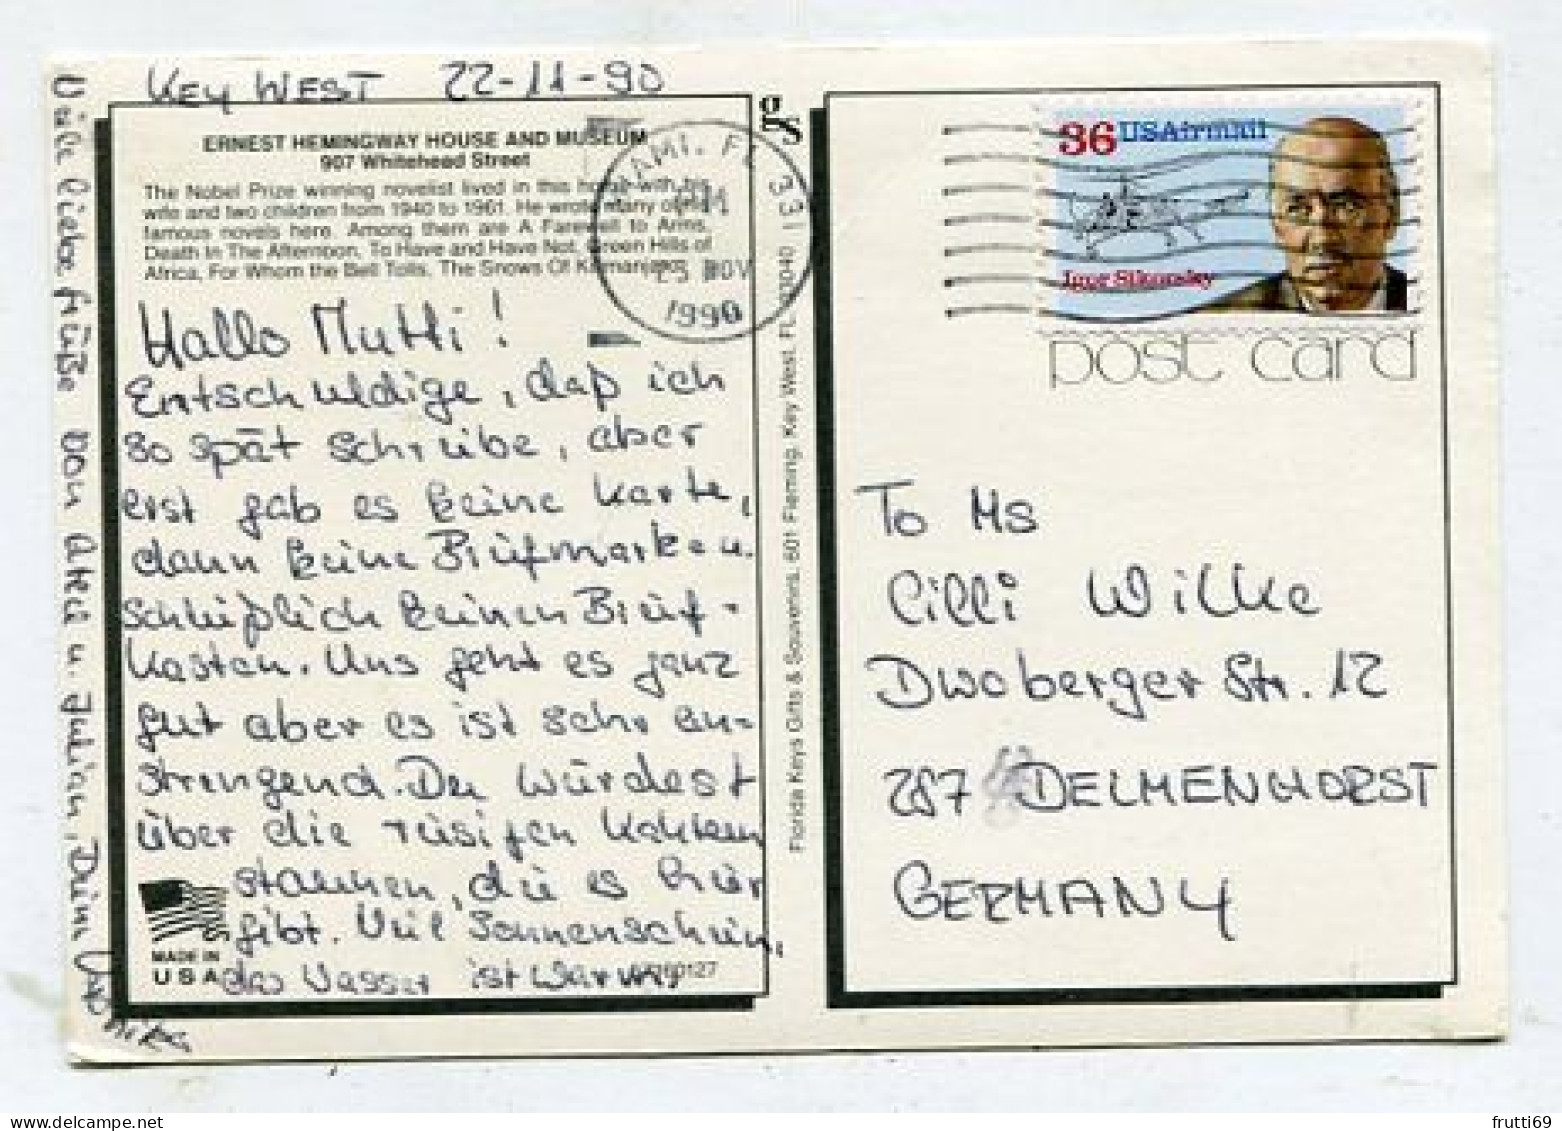 KEY WEST 22-11-90
ERNEST HEMINGWAY HOUSE AND MUSEUM
907 Whitehead Street
The Nobel Prize winning novelist lived in this house with his
wife and two children from 1940 to 1961. He wrote many of his
famous novels here. Among them are A Farewell to Arms,
Death In The Afternoon, To Have and Have Not, Green Hills of
Africa, For Whom the Bell Tolls, The Snows Of Kilimanjaro.
Hallo Mutti!
Entschuldige, daß ich
so spät schreibe, aber
erst gab es keine Karte,
dann keine Briefmarken u.
schließlich keinen Brief-
kasten. Uns geht es ganz
gut aber es ist sehr an-
strengend. Du würdest
über die riesigen Kakteen
staunen, die es hier
gibt. Viel Sonnenschein,
das Wasser ist warm,
MADE IN
USA
60127
Viele liebe Grüße von Axel u. Julian, Deine Monika
gs
Florida Keys Gifts & Souvenirs, 601 Fleming, Key West, FL 33040
MIAMI, FL 331
PM
25 NOV
1990
36 USAirmail
Igor Sikorsky
post card
To Ms
Cilli Wilke
Dwoberger Str. 12
287 DELMENHORST
GERMANY
frutti69